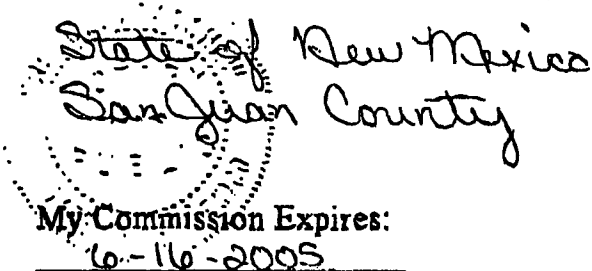 State of New Mexico
San Juan County
My Commission Expires:
6-16-2005